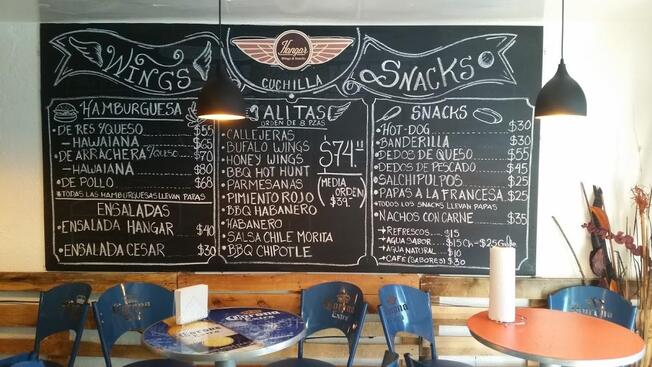 WINGS
Hangar
Wings & Snacks
CUCHILLA
SNACKS
HAMBURGUESA
•DE RES Y QUESO $55
—HAWAIANA $65
•DE ARRACHERA Y QUESO $70
—HAWAIANA $80
•DE POLLO $68
*TODAS LAS HAMBURGUESAS LLEVAN PAPAS
ENSALADAS
•ENSALADA HANGAR $40
•ENSALADA CESAR $30
ALITAS
ORDEN DE 8 PZAS
•CALLEJERAS
•BUFALO WINGS
•HONEY WINGS
•BBQ HOT HUNT
•PARMESANAS
•PIMIENTO ROJO
•BBQ HABANERO
•HABANERO
•SALSA CHILE MORITA
•BBQ CHIPOTLE
$74.
(MEDIA
ORDEN)
$39.
SNACKS
•HOT-DOG $30
•BANDERILLA $30
•DEDOS DE QUESO $55
•DEDOS DE PESCADO $45
•SALCHIPULPOS $25
•PAPAS A LA FRANCESA $25
TODOS LOS SNACKS LLEVAN PAPAS
•NACHOS CON CARNE $35
→REFRESCOS $15
→AGUA SABOR $15 Ch-$25
→AGUA NATURAL $10
→CAFÉ (SABORES) $30
Corona
Extra
Corona
Corona
Corona